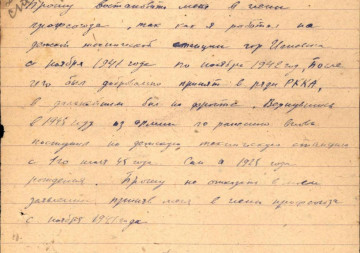 Прошу восстановить меня в члены
профсоюза, так как я работал на
детской технической станции гор
с ноября 1941 года по ноябрь 1942 год, После
чего был добровольно принят в ряды РККА,
в дальнейшем был на фронте. Возвратившись
в 1945 году из армии по ранению вновь
поступил на детскую техническую станцию
с 1го июля 45 года. Сам с 1925 года
рождения. Прошу не отказать в моем
заявлении принять меня в члены профсоюза
с ноября 1941 года